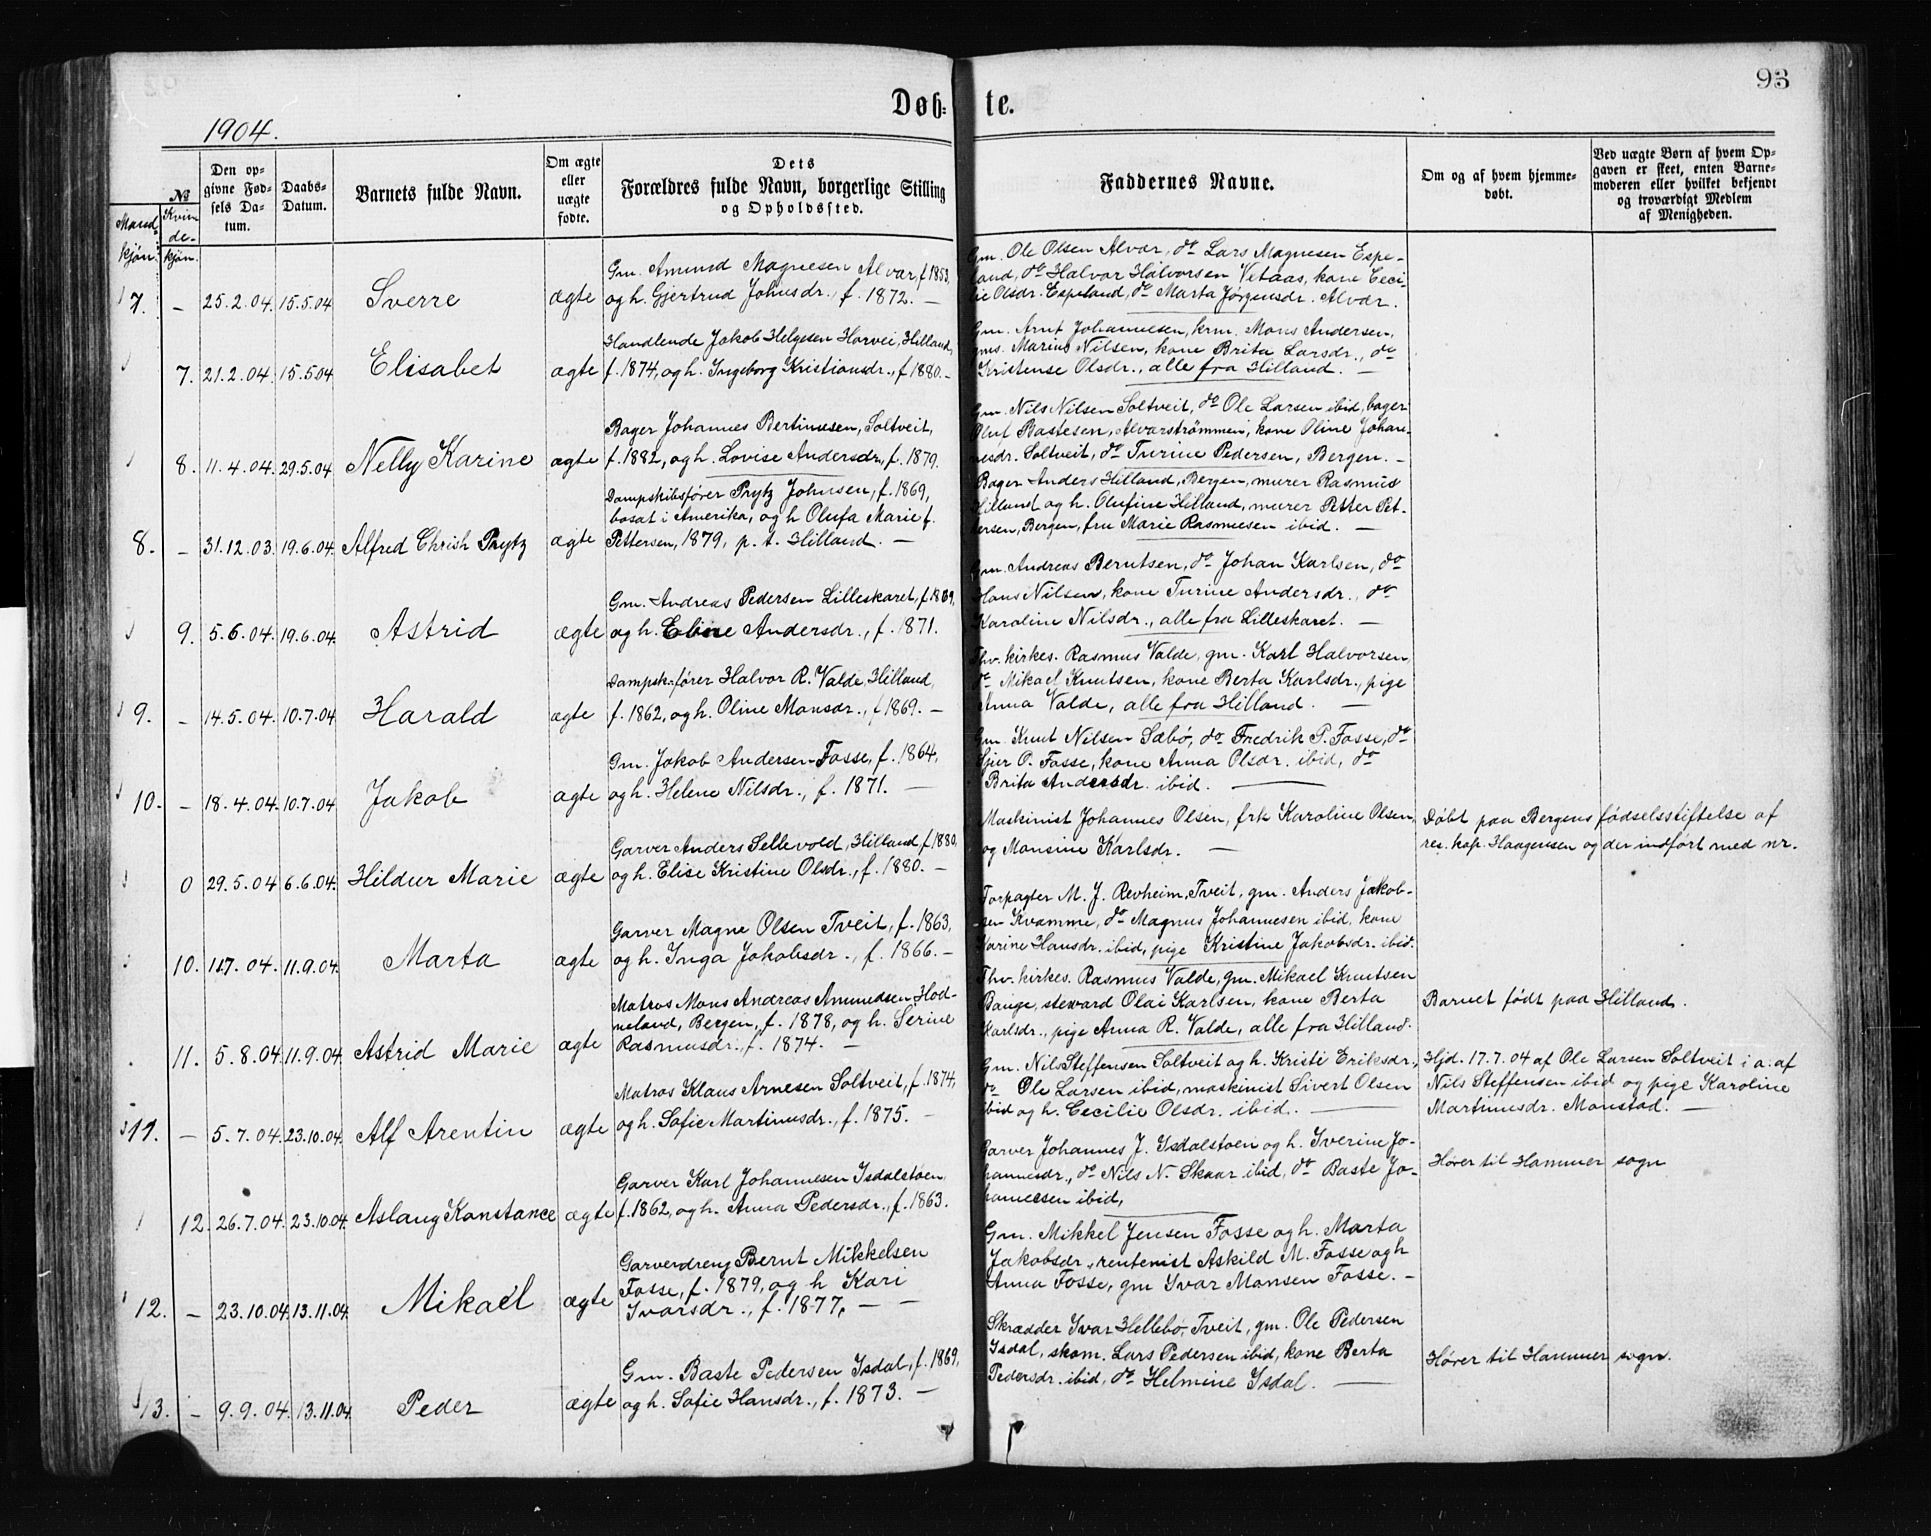 93
Døb-
te.
1904.
№
Mand-
kjøn.
Kvin-
de-
kjøn.
Den op-
givne Fød-
sels Da-
tum.
Daabs-
Datum.
Barnets fulde Navn.
Om ægte
eller
uægte
fødte.
Dets
Forældres fulde Navn, borgerlige Stilling
og Opholdssted.
Faddernes Navne.
Om og af hvem hjemme-
døbt.
Ved uægte Børn af hvem Op-
gaven er skeet, enten Barne-
moderen eller hvilket bekjendt
og troværdigt Medlem
af Menigheden.
7. - 25.2.04. 15.5.04 Sverre ægte
Gm. Amund Magnesen Alvar, f. 1853,
og h. Gjertrud Johnsdr., f. 1872. —
Gm. Ole Olsen Alvær, do Lars Magnesen Espe-
land, do Halvor Halvorsen Vetaas, kone Ceci-
lie Olsdr. Espeland, do Marta Jørgensdr. Alvær.
7. 21.2.04. 15.5.04 Elisabet ægte
Handlende Jakob Helgesen Horvei, Hilland,
f. 1874, og h. Ingeborg Kristiansdr., f. 1880. —
Gm. Arnt Johannesen, krm. Mons Andersen,
gms. Marius Nilsen, kone Brita Larsdr., do
Kristense Olsdr., alle fra Hilland. —
8. 11.4.04. 29.5.04 Nelly Karine ægte
Bager Johannes Bertinusen, Soltveit,
f. 1882, og h. Lovise Andersdr., f. 1879.
Gm. Nils Nilsen Soltveit, do Ole Larsen ibid, bager
Oluf Bastesen, Alvarstrømmen, kone Oline Johan-
nesdr. Soltveit, do Turine Pedersen, Bergen. —
8. - 31.12.03. 19.6.04. Alfred Chrish Prytz ægte
Dampskibsfører Prytz Johnsen, f. 1869,
bosat i Amerika, og h Olufa Marie f.
Pettersen, 1879, p. t. Hilland. —
Bager Anders Hilland, Bergen, murer Rasmus
Hilland og h. Olufine Hilland, murer Petter Pet-
tersen, Bergen, fru Marie Rasmussen ibid. —
9. 5.6.04. 19.6.04. Astrid ægte
Gm. Andreas Pedersen Lilleskaret, f. 1869,
og h. Eline Andersdr., f. 1871.
Gm. Andreas Berntsen, do Johan Karlsen, do
Hans Nilsen, kone Turine Andersdr., do
Karoline Nilsdr., alle fra Lilleskaret. —
9. - 14.5.04. 10.7.04. Harald ægte
Dampsk.fører Halvor R. Valde, Hilland,
f. 1862, og h. Oline Monsdr., f 1869. —
Thv. kirkes. Rasmus Valde, gm. Karl Halvorsen,
do Mikael Knutsen, kone Berta Karlsdr., pige
Anna Valde, alle fra Hilland. —
10. - 18.4.04. 10.7.04 Jakob ægte
Gm. Jakob Andersen Fosse, f. 1864,
og h. Helene Nilsdr., f. 1871. —
Gm. Knut Nilsen Sæbø, do Fredrik P. Fosse, do
Sjur O. Fosse, kone Anna Olsdr. ibid, do
Brita Andersdr. ibid. —
0 29.5.04 6.6.04. Hildur Marie ægte
Garver Anders Sellevold, Hilland, f. 1880,
og h. Elise Kristine Olsdr., f. 1880. —
Maskinist Johannes Olsen, frk Karoline Olsen,
og Monsine Karlsdr. —
Døbt paa Bergens fødselsstiftelse af
res. kap. Haagensen og der indført med nr.
10. 11.7.04. 11.9.04. Marta ægte
Garver Magne Olsen Tveit, f. 1863,
og h. Inga Jakobsdr., f. 1866. —
Forpagter M. J. Revheim, Tveit, gm. Anders Jakob-
sen Kvamme, do Magnus Johannesen ibid, kone
Karine Hansdr. ibid, pige Kristine Jakobsdr. ibid.
11. 5.8.04. 11.9.04. Astrid Marie ægte
Matros Mons Andreas Amundsen Hod-
neland, Bergen, f. 1878, og h. Serine
Rasmusdr., f. 1874. —
Thv. kirkes. Rasmus Valde, gm. Mikael Knutsen
Bauge, steward Olai Karlsen, kone Berta
Karlsdr., pige Anna R. Valde, alle fra Hilland.
Barnet født paa Hilland.
11. - 5.7.04. 23.10.04. Alf Arentin ægte
Matros Klaus Arnesen Soltveit, f. 1874,
og h. Sofie Martinusdr., f. 1875. —
Gm. Nils Steffensen Soltveit og h. Kristi Eriksdr.,
do Ole Larsen ibid, maskinist Sivert Olsen
ibid og h. Cecilie Olsdr. ibid. —
Hjd. 17.7.04 af Ole Larsen Soltveit i o. af
Nils Steffensen ibid og pige Karoline
Martinusdr. Monstad. —
12. 26.7.04. 23.10.04. Aslaug Konstance ægte
Garver Karl Johannesen Isdalstøen,
f. 1862, og h. Anna Pedersdr., f. 1863.
Garver Johannes J. Isdalstøen og h. Iverine Jo-
hannesdr., do Nils N. Skaar ibid, do Baste Jo-
hannessen ibid,
Hører til Hammer sogn
12. - 23.10.04. 13.11.04. Mikael ægte
Garverdreng Bernt Mikkelsen
Fosse, f. 1879, og h Kari
Ivarsdr., f. 1877, — —
Gm. Mikkel Jensen Fosse og h. Marta
Jakobsdr., rentenist Askild M. Fosse og h
Anna Fosse, gm Ivar Monsen Fosse. —
13. - 9.9.04. 13.11.04 Peder ægte
Gm. Baste Pedersen Isdal, f. 1869,
og h. Sofie Hansdr., f. 1873. —
Skrædder Ivar Hellebø, Tveit, gm. Ole Pedersen
Isdal, skom. Lars Pedersen ibid, kone Berta
Pedersdr. ibid, do Helmine Isdal. —
Hører til Hammer sogn.